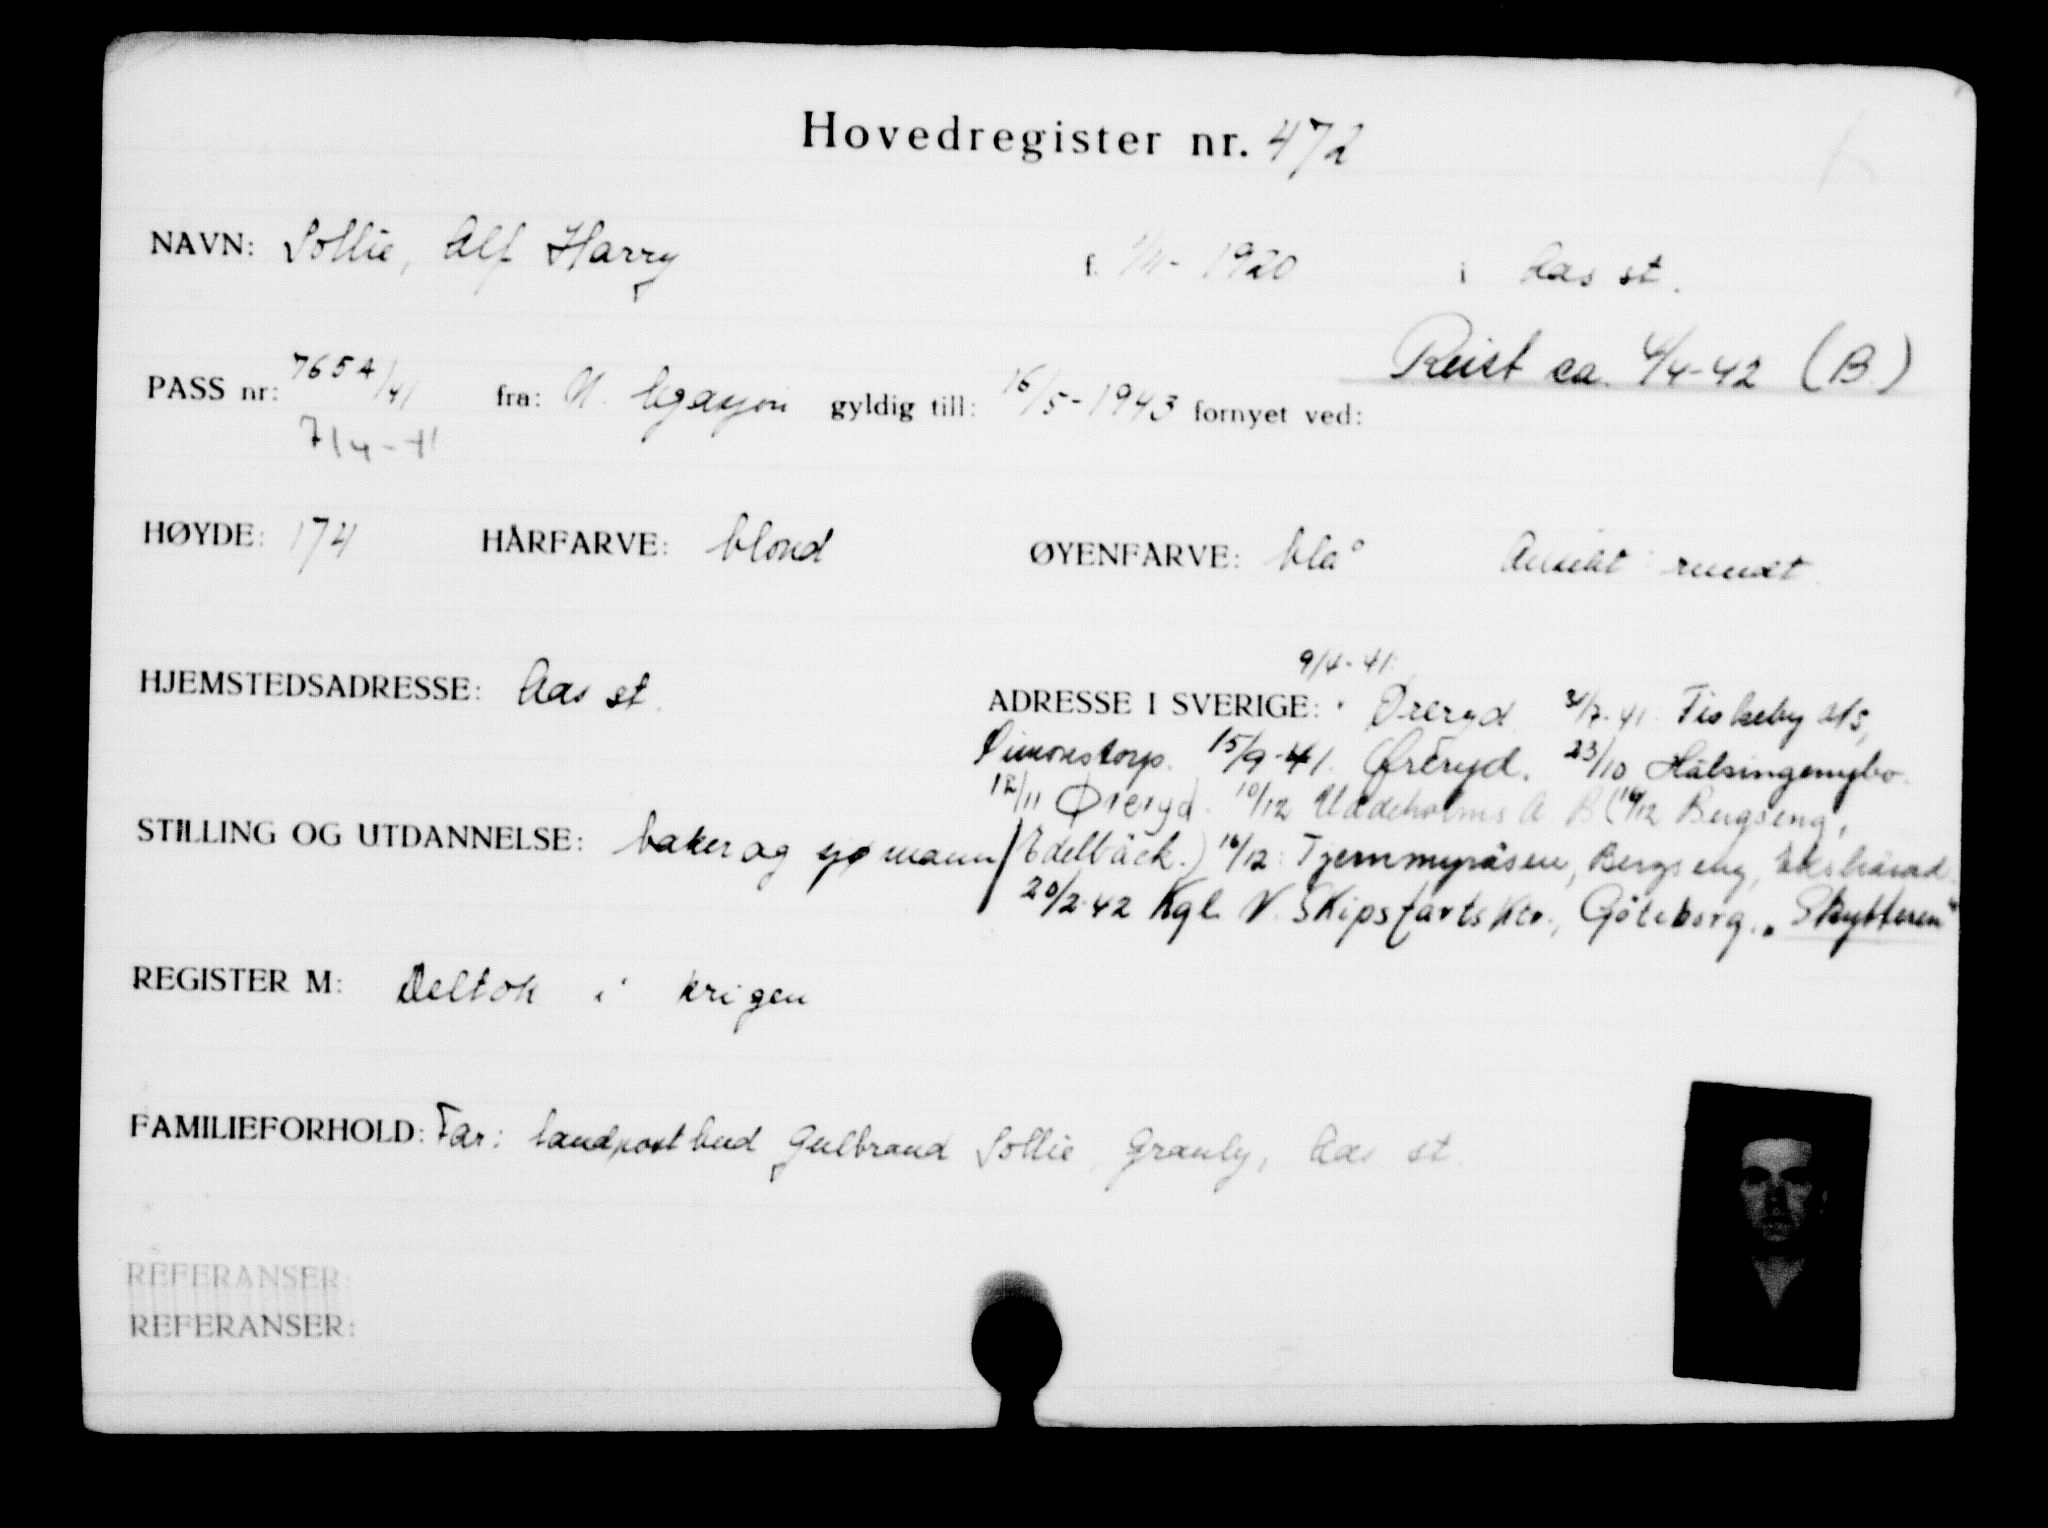 Hovedregister nr. 472
NAVN: Sollie, Alf Harry f. 1/4-1920 i Aas st.
Reist ca. 4/4-42 (B.)
PASS nr: 7654/41 fra: N. legasjon gyldig till: 16/5-1943 fornyet ved:
7/4-41
HØYDE: 174 HÅRFARVE: blond ØYENFARVE: blå Ansikt: rundt.
9/4-41:
HJEMSTEDSADRESSE: Aas st. ADRESSE I SVERIGE: Øreryd. 31/7-41: Fiskeby A/S,
Simonstorp. 15/9-41. Øreryd. 23/10 Hälsingenybo.
12/11 Øreryd. 10/12 Uddeholms A B (14/12 Bergseng,
STILLING OG UTDANNELSE: baker og sjømann Edelbäck.) 16/12: Tjernmyråsen, Bergseng, Ekshärad.
20/2-42 Kgl. N. Skipsfartsktr., Göteborg. "Skytteren"
REGISTER M: Deltok i krigen
FAMILIEFORHOLD: Far: landpostbud Gulbrand Sollie, Granly, Aas st.
REFERANSER:
REFERANSER: